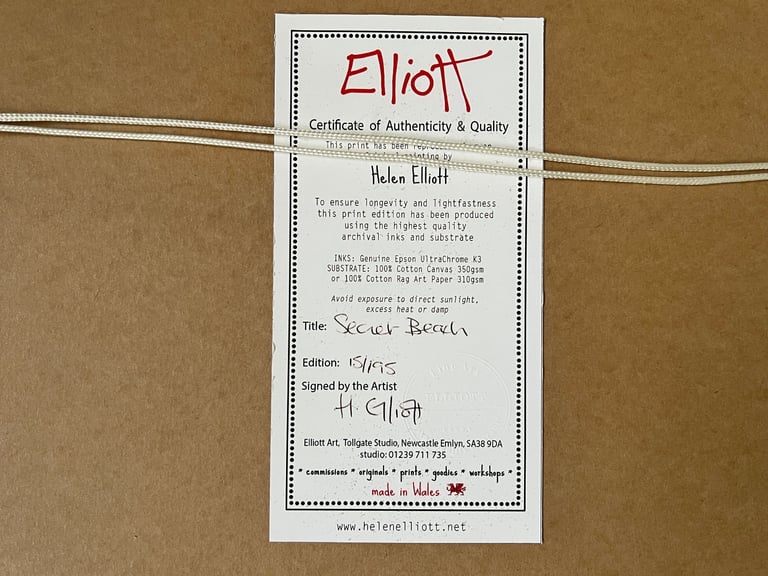 Elliott
Certificate of Authenticity & Quality
This print has been
painting by
Helen Elliott
To ensure longevity and lightfastness
this print edition has been produced
using the highest quality
archival inks and substrate
INKS: Genuine Epson UltraChrome K3
SUBSTRATE: 100% Cotton Canvas 350gsm
or 100% Cotton Rag Art Paper 310gsm
Avoid exposure to direct sunlight,
excess heat or damp
Title: Secret Beach
Edition: 15/195
Signed by the Artist
H. Elliott
ELLIOTT
Elliott Art, Tollgate Studio, Newcastle Emlyn, SA38 9DA
studio: 01239 711 735
* commissions * originals * prints * goodies * workshops *
made in Wales
www.helenelliott.net